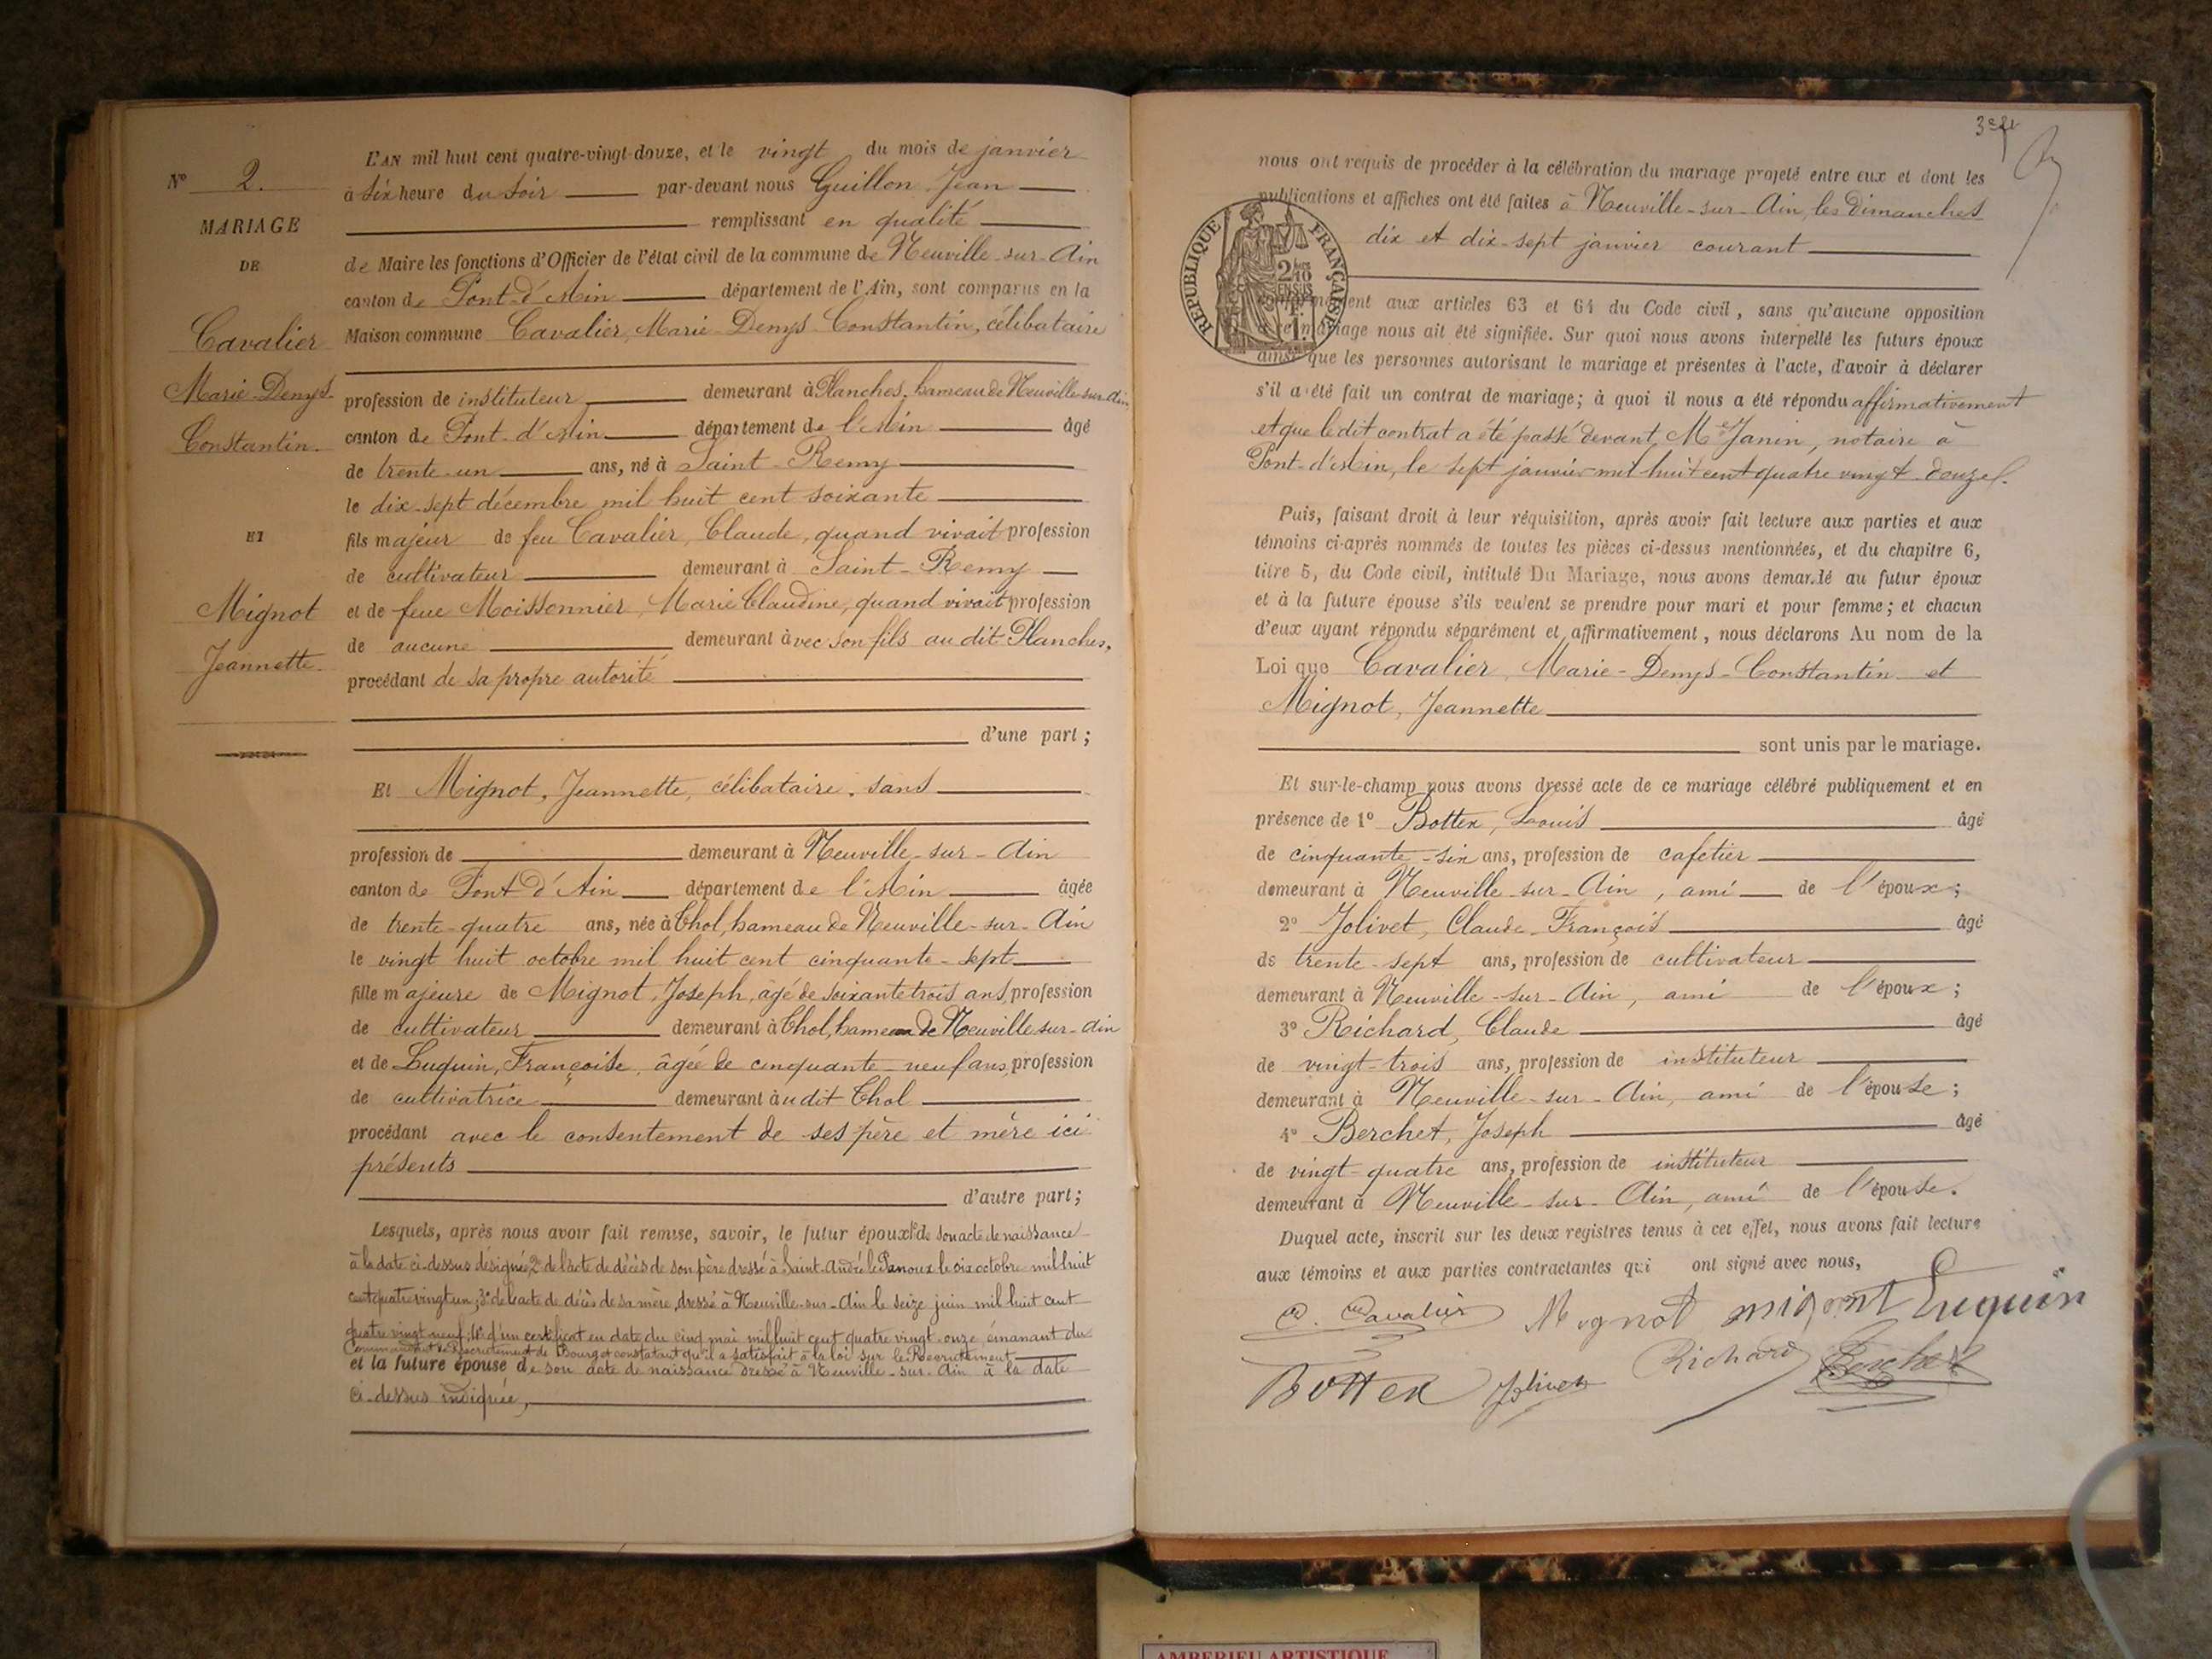 N° 2.
MARIAGE
DE
Cavalier
Marie-Denys-
Constantin.
ET
Mignot
Jeannette.
L'AN mil huit cent quatre-vingt-douze, et le vingt du mois de janvier
à six heure du soir par-devant nous Guillon Jean
remplissant en qualité
de Maire les fonctions d'Officier de l'état civil de la commune de Neuville-sur-Ain
canton de Pont-d'Ain département de l'Ain, sont comparus en la
Maison commune Cavalier, Marie-Denys-Constantin, célibataire
profession de instituteur demeurant à Planches, hameau de Neuville-sur-Ain,
canton de Pont-d'Ain département de l'Ain âgé
de trente-un ans, né à Saint-Remy
le dix-sept décembre mil huit cent soixante
fils majeur de feu Cavalier, Claude, quand vivait profession
de cultivateur demeurant à Saint-Remy
et de feue Moissonnier, Marie Claudine, quand vivait profession
de aucune demeurant avec son fils au dit Planches,
procédant de sa propre autorité
d'une part;
Et Mignot, Jeannette, célibataire, sans
profession de demeurant à Neuville-sur-Ain
canton de Pont d'Ain département de l'Ain âgée
de trente-quatre ans, née à Thol, hameau de Neuville-sur-Ain
le vingt huit octobre mil huit cent cinquante-sept
fille majeure de Mignot, Joseph, âgé de soixante trois ans, profession
de cultivateur demeurant à Thol, hameau de Neuville sur-Ain
et de Luquin, Françoise, âgée de cinquante-neuf ans, profession
de cultivatrice demeurant audit Thol
procédant avec le consentement de ses père et mère ici
présents
d'autre part;
Lesquels, après nous avoir fait remise, savoir, le futur époux 1° de son acte de naissance
à la date ci-dessus désignée, 2° de l'acte de décès de son père dressé à Saint-André le Panoux le six octobre mil huit
cent quatre vingt un; 3° de l'acte de décès de sa mère, dressé à Neuville-sur-Ain le seize juin mil huit cent
quatre vingt neuf; 4° d'un certificat en date du cinq mai mil huit cent quatre vingt-onze, émanant du
Commandant de Recrutement de Bourg et constatant qu'il a satisfait à la loi sur le Recrutement
et la future épouse de son acte de naissance dressé à Neuville-sur-Ain à la date
ci-dessus indiquée,
nous ont requis de procéder à la célébration du mariage projeté entre eux et dont les
publications et affiches ont été faites à Neuville-sur-Ain, les Dimanches
dix et dix-sept janvier courant
RÉPUBLIQUE FRANÇAISE
conformément aux articles 63 et 64 du Code civil, sans qu'aucune opposition
à ce mariage nous ait été signifiée. Sur quoi nous avons interpellé les futurs époux
ainsi que les personnes autorisant le mariage et présentes à l'acte, d'avoir à déclarer
s'il a été fait un contrat de mariage; à quoi il nous a été répondu affirmativement
et que le dit contrat a été passé devant Me Janin, notaire à
Pont-d'Ain, le sept janvier mil huit cent quatre vingt-douze.
Puis, faisant droit à leur réquisition, après avoir fait lecture aux parties et aux
témoins ci-après nommés de toutes les pièces ci-dessus mentionnées, et du chapitre 6,
titre 5, du Code civil, intitulé Du Mariage, nous avons demandé au futur époux
et à la future épouse s'ils veulent se prendre pour mari et pour femme; et chacun
d'eux ayant répondu séparément et affirmativement, nous déclarons Au nom de la
Loi que Cavalier, Marie-Denys-Constantin et
Mignot, Jeannette
sont unis par le mariage.
Et sur-le-champ nous avons dressé acte de ce mariage célébré publiquement et en
présence de 1° Bottex, Louis âgé
de cinquante-six ans, profession de cafetier
demeurant à Neuville-sur-Ain, ami de l'époux;
2° Jolivet, Claude-François âgé
de trente-sept ans, profession de cultivateur
demeurant à Neuville-sur-Ain, ami de l'époux;
3° Richard, Claude âgé
de vingt-trois ans, profession de instituteur
demeurant à Neuville-sur-Ain, ami de l'épouse;
4° Berchet, Joseph âgé
de vingt-quatre ans, profession de instituteur
demeurant à Neuville-sur-Ain, ami de l'épouse.
Duquel acte, inscrit sur les deux registres tenus à cet effet, nous avons fait lecture
aux témoins et aux parties contractantes qui ont signé avec nous,
C. Cavalier Mignot mignot Luquin
Richard Berchet
Bottex Jolivet
AMBERIEU ARTISTIQUE